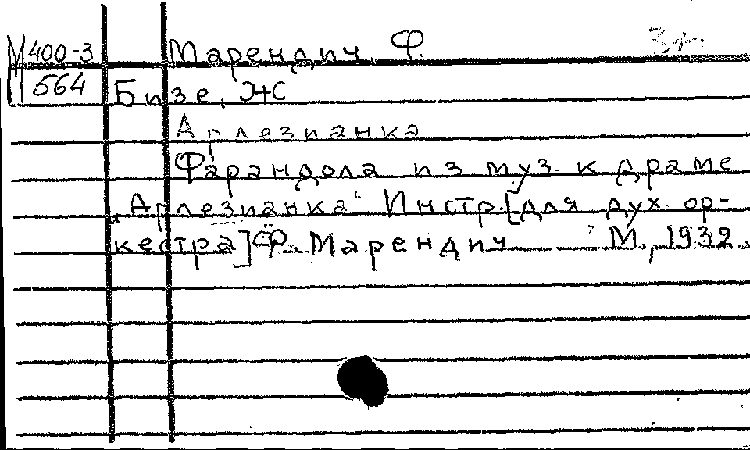 М 400-3 Марендич, Ф.
564 Бизе, Ж
Арлезианка
Фарандола из муз. к драме
„Арлезианка" Инстр. [для дух. ор-
кестра] Ф. Марендич М., 1932